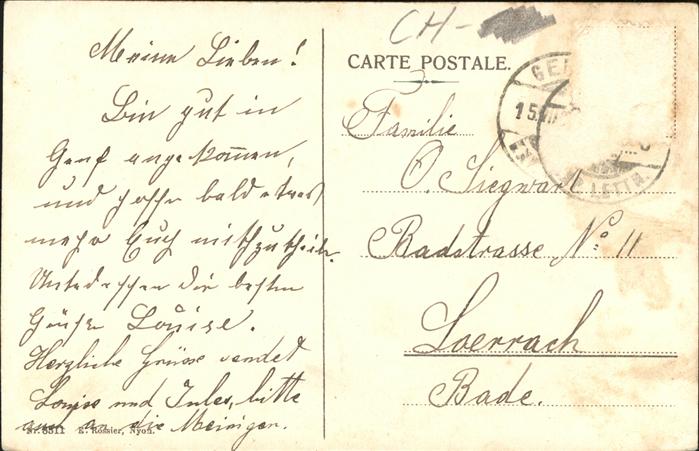 Meine Lieben!
Bin gut in
Genf angekommen,
und hoffe bald etwas
mehr Euch mitzutheilen.
Unterdessen die besten
Grüsse Louise.
Herzliche Grüsse sendet
Louise und Jules, bitte
auch an die Meinigen.
Nr. 8311 E. Rossier, Nyon.
CH-
CARTE POSTALE.
Familie
O. Siegwart
Badstrasse No 11
Loerrach
Bade.
GE
15.
LETTR.